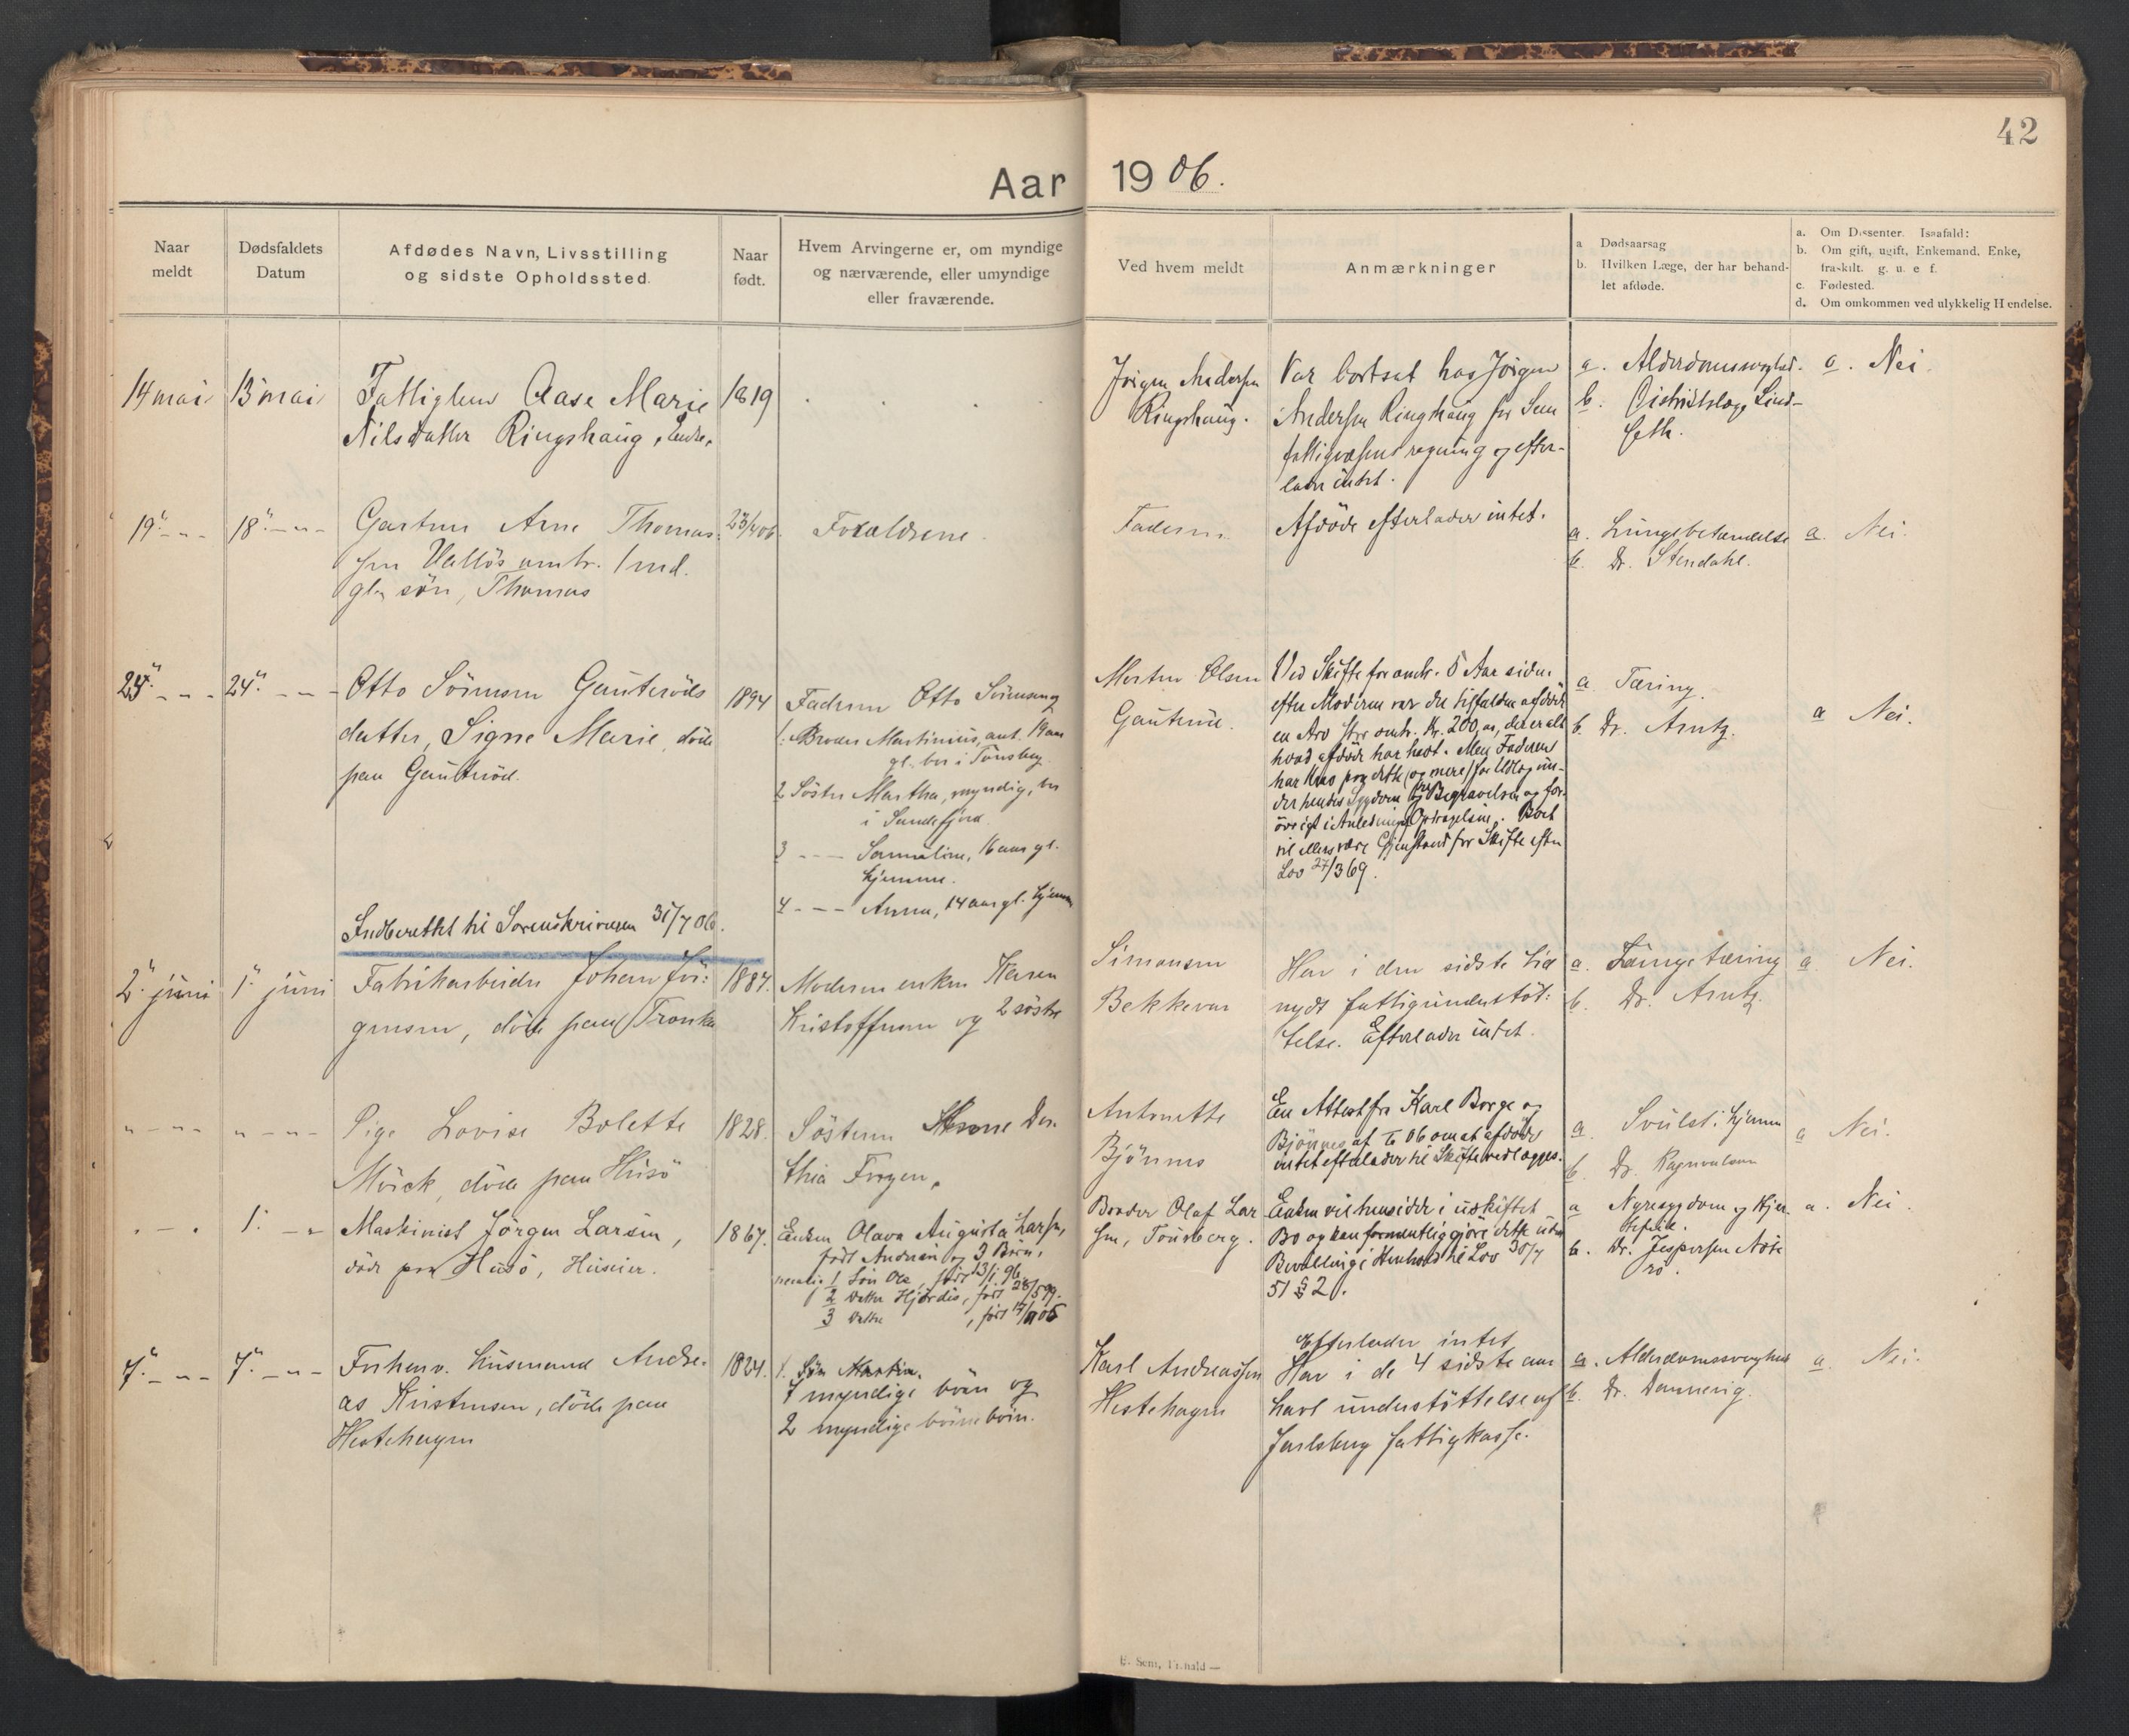 42
Aar 1906.
Naar meldt
Dødsfaldets Datum
Afdødes Navn, Livsstilling
og sidste Opholdssted.
Naar født.
Hvem Arvingerne er, om myndige
og nærværende, eller umyndige
eller fraværende.
Ved hvem meldt
Anmærkninger
a Dødsaarsag
b. Hvilken Læge, der har behand-
let afdøde.
a. Om Dissenter. Isaafald:
b. Om gift, ugift, Enkemand, Enke,
fraskilt. g. u. e f.
c. Fødested.
d. Om omkommen ved ulykkelig Hendelse.
14 mai 13 mai
Fattiglem Aase Marie
Nilsdatter Ringshaug, Enke,
1819
Jørgen Andersen
Ringshaug.
Var bortsat hos Jørgen
Andersen Ringshaug for Sem
fattigvæsens regning og efter-
lader intet.
a. Alderdomssvaghed.
b. Distriktslæge Lind-
seth.
a. Nei.
19. 18.
Gartner Arne Thomas-
sen Vallös omtr. 1 md.
gl. sön, Thomas
23/4 06.
Forældrene.
Faderen.
Afdöde efterlader intet.
a. Lungebetændelse
b. Dr. Stendahl.
a. Nei.
25. 24.
Otto Sörensen Gauteröds
datter, Signe Marie, döde
paa Gauteröd.
1894
Faderen Otto Sörensen og
1. Broder Martinius, ant. 19 aar
gl. bor i Tönsberg.
2 Söster Martha, myndig, bor
i Sandefjord.
3 --- 16 aar gl.
hjemme.
4 --- Anna, 14 aar gl. hjemme
Morten Olsen
Gauteröd.
Ved Skifte for omtr. 5 Aar siden
efter Moderen var der tilfalden afdöde
en Arv stor omtr. Kr. 200,00, det er alt
hvad afdöde har havt. Men Faderen
har Krav paa dette (og mere) for Udlæg un-
der hendes Sygdom og Begravelsen og for-
övrigt i Anledning Opdragelsen. Boet
vil ellers være Gjenstand for Skifte efter
Lov 27/3 69.
a Tæring.
b. Dr. Arntz.
a Nei.
Indberettet til Sorenskriveren 31/7 06.
2. juni 1. juni
Fabrikarbeider Johan Jör-
gensen, döde paa Tronka
1884.
Moderen enken Karen
Kristoffersen og 2 söstre
Simonsen
Bekkevar
Har i den sidste tid
nydt fattigunderstöt-
telse. Efterlader intet.
a. Lungetæring
b. Dr. Arntz.
a Nei.
Pige Lovise Bolette
Mörck, döde paa Husö
1828.
Sösteren Hanne Do-
thia Forgen.
Antonette
Bjönnes
En Attest fra Karl Borge og
Bjönnes af 06 om at afdöde
intet efterlader til Skifte vedlægges.
a. Svulst i hjernen
b. Dr. Ragnvalsen
a Nei.
1.
Maskinist Jörgen Larsen,
döde paa Husö, Huseier.
1867.
Enken Olava Augusta Larsen,
född Andersen og 3 Börn,
nemlig 1 Sön Ole, född 13/1. 96
2 Datter Hjördis, född 28/5 99.
3 Datter , född 17/11 05
Broder Olaf Lar-
sen, Tönsberg.
Enken vil hensidde i uskiftet
Bo og kan formentlig gjöre dette uden
Bevilling i Henhold til Lov 30/7
51 § 2.
a Nyresygdom og Hjer-
tefeil.
b. Dr. Jespersen Nöte-
rö.
a. Nei.
7. 7.
Forhenv. husmand Andre-
as Kristensen, döde paa
Hestehagen
1824.
1. Sön Martin.
7 myndige börn og
2 myndige börnebörn.
Karl Andreassen
Hestehagen
Efterlader intet
Har i de 4 sidste aar
havt understöttelse af
Jarlsberg fattigkasse.
a. Alderdomssvaghed
b. Dr. Dannevig.
a. Nei.